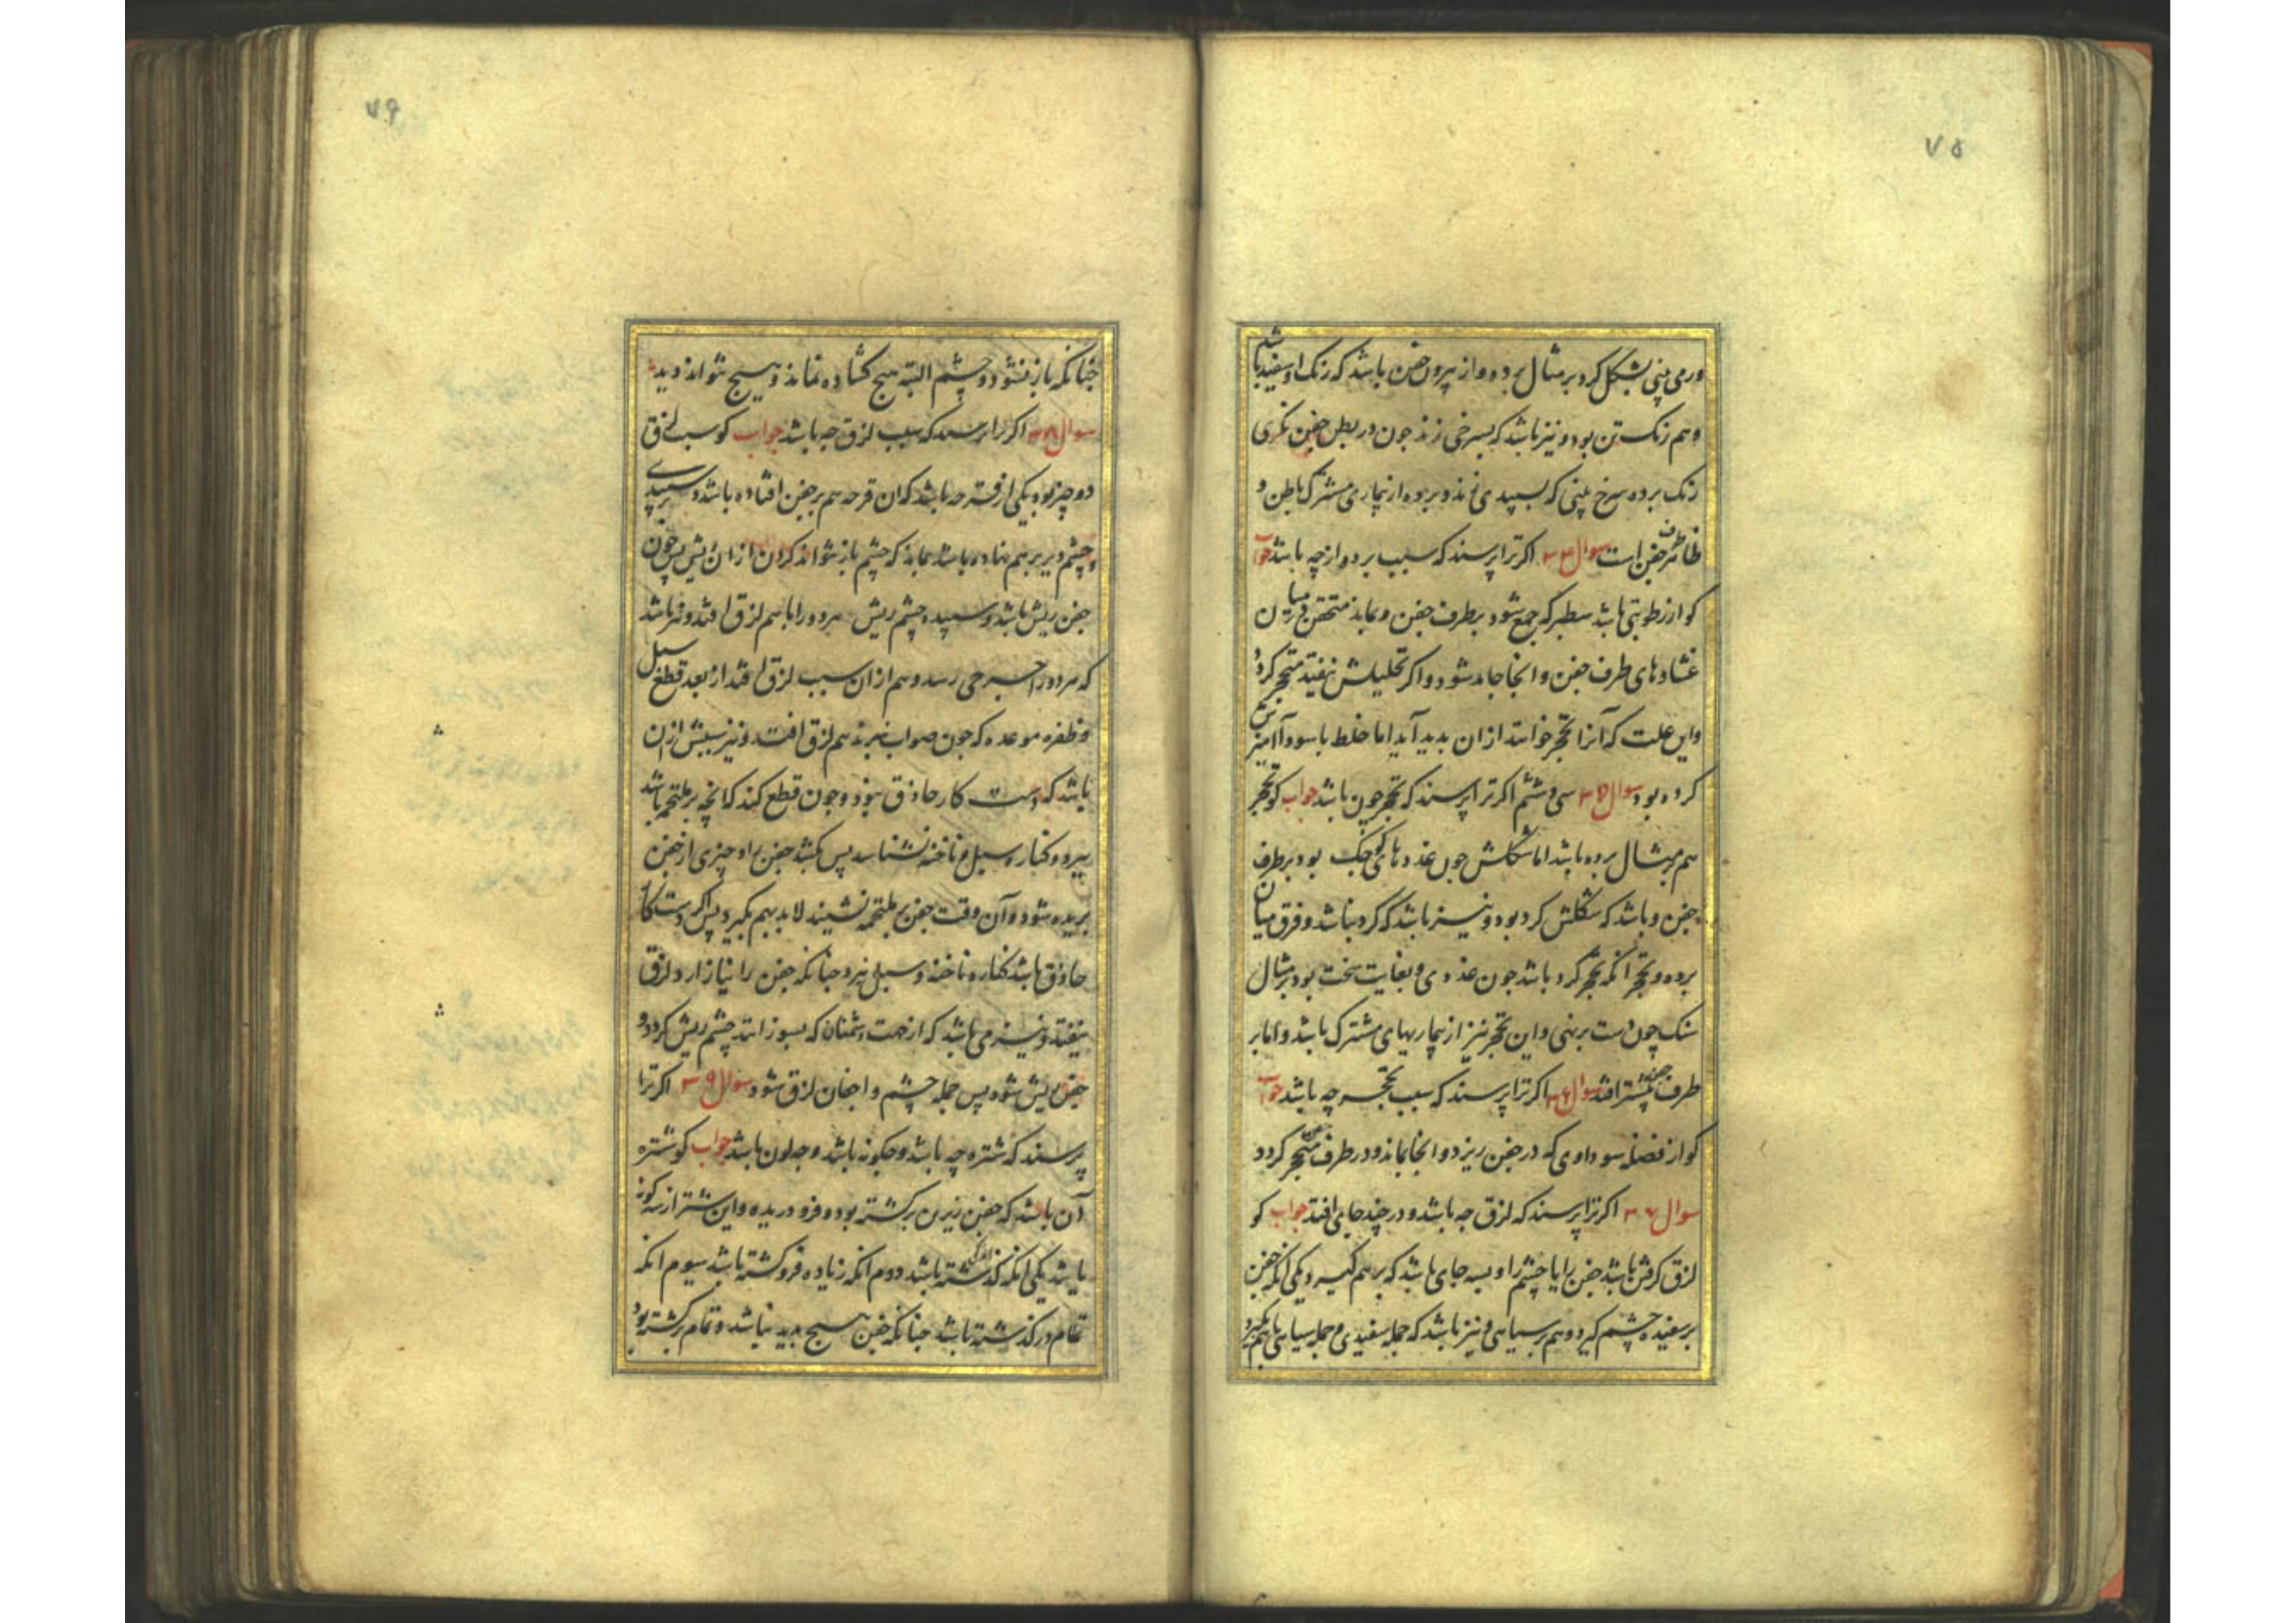 ۷۵
ورمی بینی بشکل کرد بر مثال برده و از بیرون جفن باشد که رنک او سفید باشد
و هم رنک تن بود و نیز باشد که بسرخی زند چون در بطن جفن نکری
رنک برده سرخ بینی که بسپیدی زند و برده از بیماری مشترک باطن و
ظاهر جفن است سوال ۳۴ اکر ترا پرسند که سبب برده از چه باشد جواب
کو از رطوبتی باشد سطبر که جمع شود بطرف جفن و بماند متحقن در میان
غشاوهای طرف جفن و انجا جامد شود و اکر تحلیلش نیفتد متحجر کردد
و این علت که آنرا تحجر خوانند ازان بدید آید اما خلط با سودا آمیزش
کرده بود سوال ۳۵ سی و ششم اکر ترا پرسند که تحجر چون باشد جواب کو تحجر
هم بر مثال برده باشد اما شکلش چون غددهای کوچک بود بر طرف
جفن و باشد که شکلش کرد بود و نیز باشد که کرد نباشد و فرق میان
برده و تحجر آنکه تحجر کرد باشد چون غددی و بغایت سخت بود بر مثال
سنک چون دست برنهی و این تحجر نیز از بیماریهای مشترک باشد و اما بر
طرف جفن بیشتر افتد سوال ۳۶ اکر ترا پرسند که سبب تحجر چه باشد جواب
کو از فضله سوداوی که در جفن ریزد و انجا بماند و در طرف جفن متحجر کردد
سوال ۳۷ اکر ترا پرسند که لزق چه باشد و در چند جای افتد جواب کو
لزق کرفتن باشد جفن را یا چشم را و بسه جای باشد که بر هم کیرد یکی انکه جفن
بر سفیده چشم کیرد و هم بر سیاهی و نیز باشد که جمله سفیدی و جمله سیاهی باهم کیرد
۷۶
چنانکه باز نشود و چشم البته هیچ کشاده نماند و هیچ نتواند دید
سوال ۳۸ اکر ترا پرسند که سبب لزق چه باشد جواب کو سبب لزق
دو چیز بود یکی از قرحه باشد که ان قرحه هم بر جفن افتاده باشد و هم بر سپیدی
چشم و دیر بر هم نهاده باشد بماند که چشم باز نتواند کردن از ان ریش پس چون
جفن ریش باشد و سپیده چشم ریش هر دو را باهم لزق افتد و نیز باشد
که هر دو را جرحی رسد و هم ازان سبب لزق افتد از بعد قطع سبل
و ظفره موعده که چون صواب نبرند هم لزق افتد و نیز سببش ازان
باشد که دست کار حاذق نبود و چون قطع کند که انچه بر ملتحمه باشد
ببرد و کنار سبل و ناخنه نشناسد پس بکشد جفن را و چیزی از جفن
بریده شود و آن وقت جفن بر ملتحمه نشیند لابد بهم بکیرد پس اکر دست کار
حاذق باشد کناره ناخنه و سبل نبرد چنانکه جفن را نیازارد و لزق
نیفتد و نیز می باشد که از جهت اشنان که بسوزاند چشم ریش کردد و
جفن ریش شود پس جمله چشم و اجفان لزق شود سوال ۳۹ اکر ترا
پرسند که شتره چه باشد و چکونه باشد و چه لون باشد جواب کو شتره
آن باشد که جفن زیرین برکشته بود و فرو دریده و این شتر از سه کونه
باشد یکی انکه اندکی کذشته باشد دوم انکه زیاده فروکشته باشد سیوم انکه
تمام در کذشته باشد چنانکه جفن هیچ بدید نباشد و تمام برکشته بود